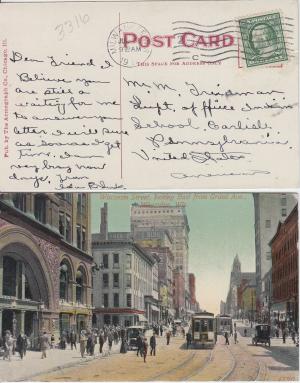 3316
MILWAUKEE
POST CARD
THIS SPACE FOR ADDRESS ONLY
Dear Friend, I
Believe you
are still a
waiting for me
to answer your
letter. I will sure
as soon as I get
time. I'm
very busy now
days. From
M. M.
Supt. of office Indian
School, Carlisle
Pennsylvania.
United States
Pub. by The Acmegraph Co., Chicago, Ill.
Wisconsin Street, looking East from Grand Ave.,
Milwaukee, Wis.